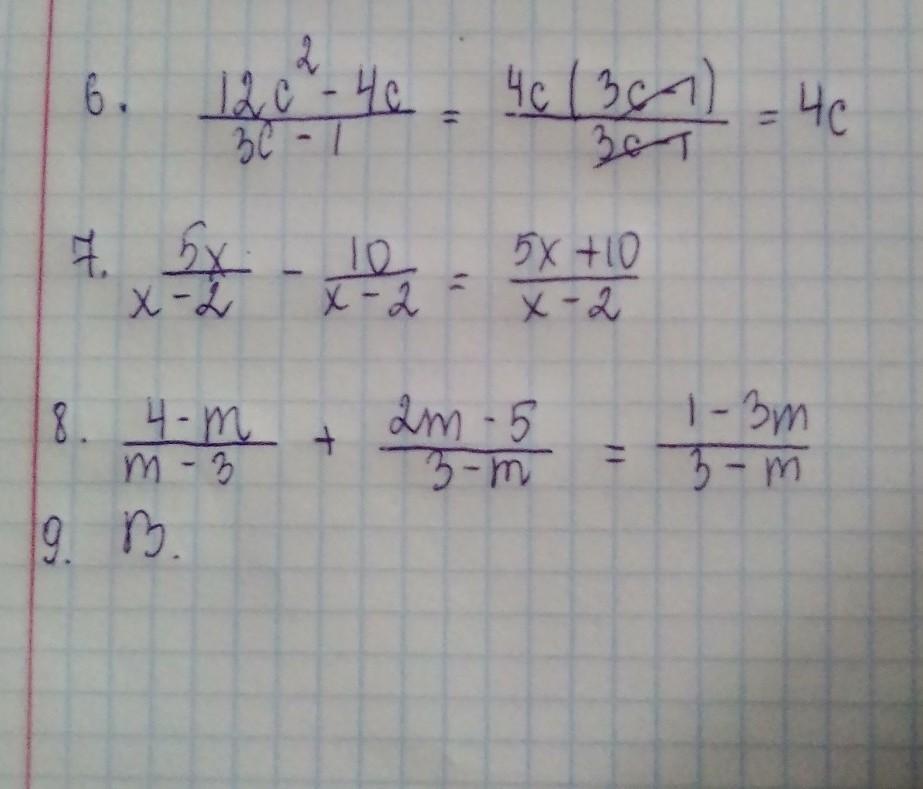 6. (12c² - 4c)/(3c - 1) = (4c(3c-1))/(3c-1) = 4c
7. (5x)/(x - 2) - (10)/(x - 2) = (5x + 10)/(x - 2)
8. (4 - m)/(m - 3) + (2m - 5)/(3 - m) = (1 - 3m)/(3 - m)
9. В.